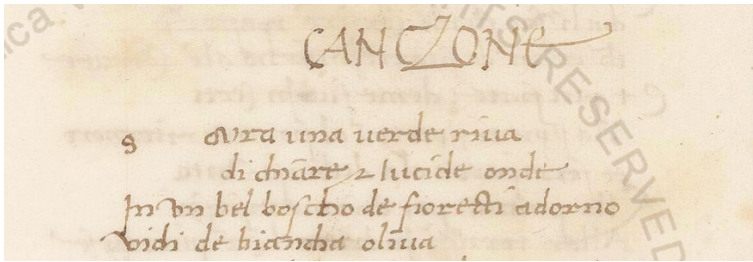 CANZONE
s oura una uerde riua
di chiare & lucide onde
In un bel boscho de fioretti adorno
vidi de biancha oliua